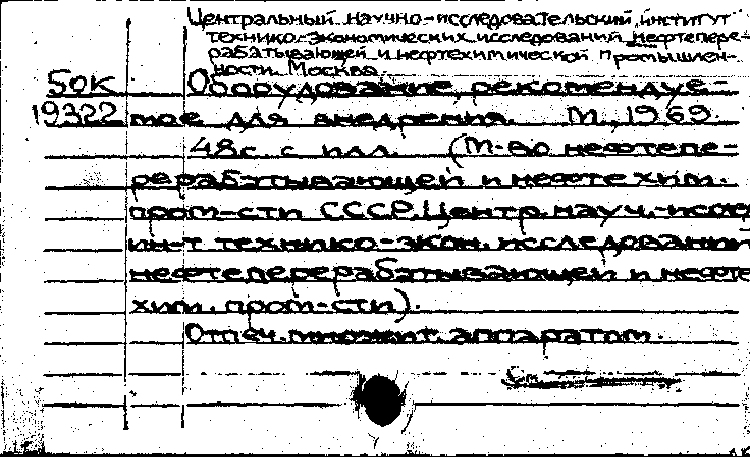 Центральный научно-исследовательский институт
технико-экономических исследований нефтепере-
рабатывающей и нефтехимической промышлен-
ности. Москва.
БОК Оборудование, рекомендуе-
19322 мое для внедрения. М., 1969.
48с. с илл. (М-во нефтепе-
рерабатывающей и нефтехим.
пром-сти СССР. Центр. науч.-исслед
ин-т технико-экон. исследований
нефтеперерабатывающей и нефте
хим. пром-сти).
Отпеч. множит. аппаратом.